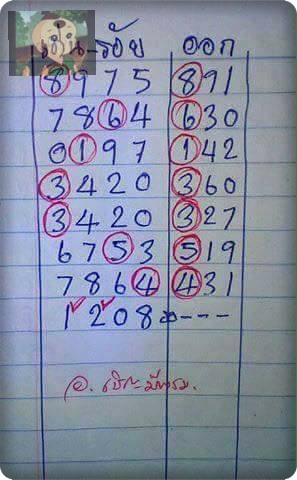 เด่น-รอง ออก
8975 891
7864 630
0197 142
3420 360
3420 327
6753 519
7864 431
1208 ---
อ.